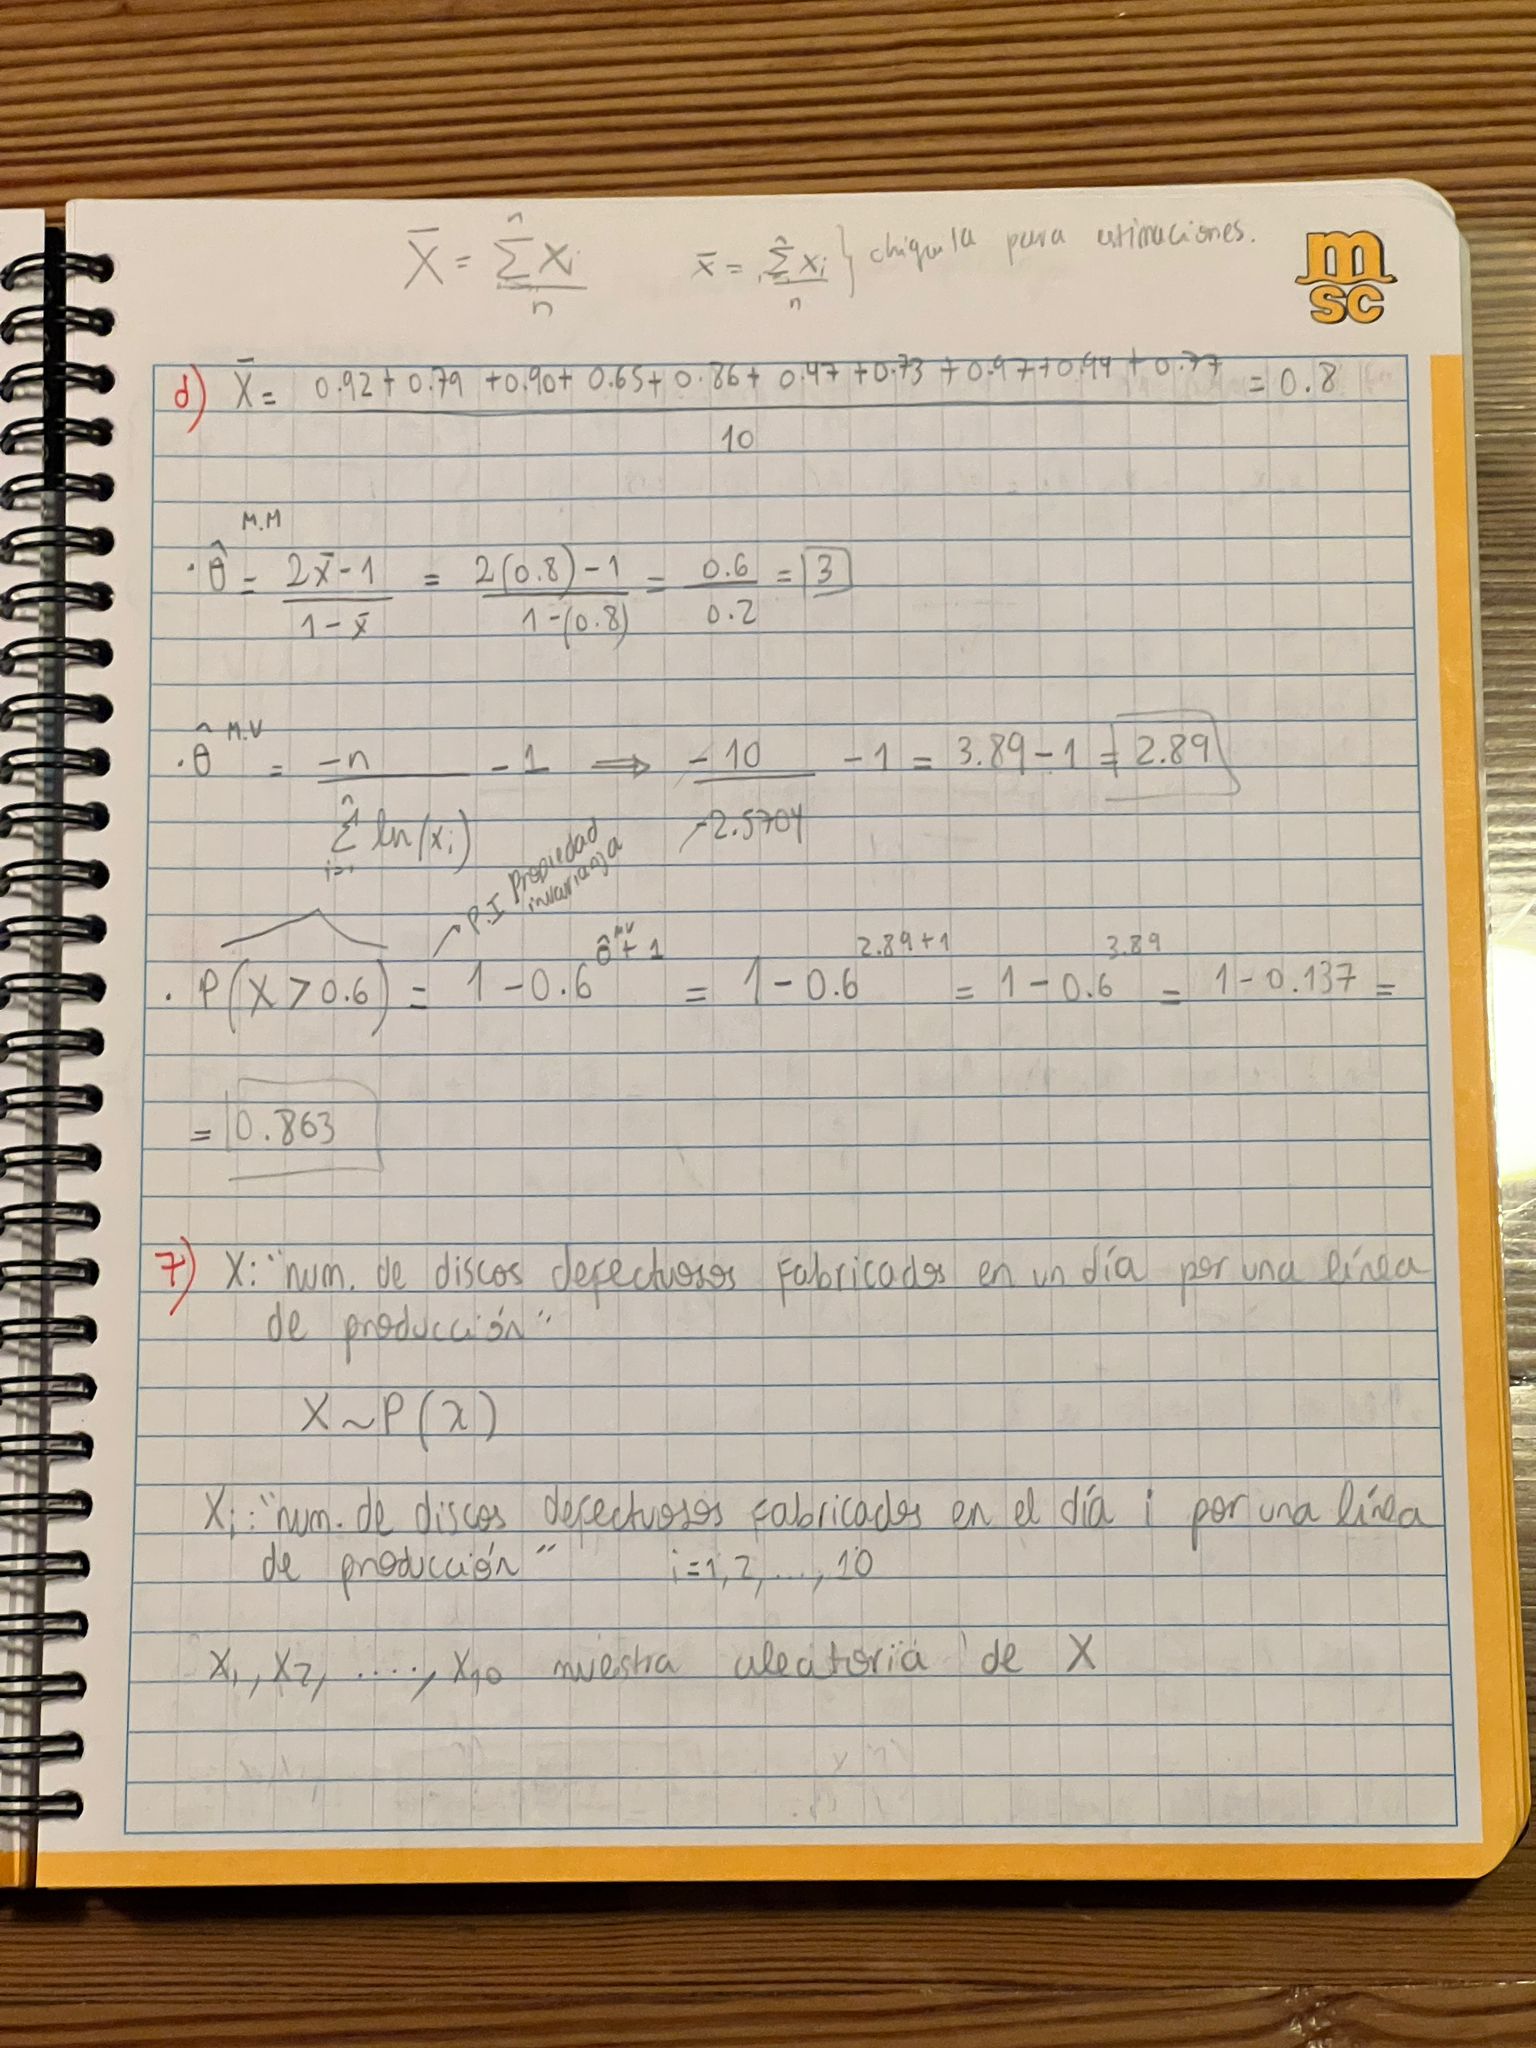 X̄ = Σⁿ Xᵢ / n    x̄ = Σⁿ xᵢ / n } chiquita para estimaciones.
msc
d) X̄ = (0.92 + 0.79 + 0.90 + 0.65 + 0.86 + 0.47 + 0.73 + 0.97 + 0.94 + 0.77) / 10 = 0.8
· θ̂ ᴹ·ᴹ = (2x̄ - 1) / (1 - x̄) = (2(0.8) - 1) / (1 - (0.8)) = 0.6 / 0.2 = 3
· θ̂ ᴹ·ⱽ = -n / Σⁿᵢ₌₁ ln(xᵢ) - 1 ⟹ -10 / -2.5704 - 1 = 3.89 - 1 = 2.89
→ P.I Propiedad invarianza
· P(X > 0.6) = 1 - 0.6^(θ̂ᴹⱽ + 1) = 1 - 0.6^(2.89 + 1) = 1 - 0.6^3.89 = 1 - 0.137 =
= 0.863
7) X: "num. de discos defectuosos fabricados en un día por una línea
de producción"
X ~ P(λ)
Xᵢ: "num. de discos defectuosos fabricados en el día i por una línea
de producción"    i = 1, 2, ..., 10
X₁, X₂, ...., X₁₀ muestra aleatoria de X